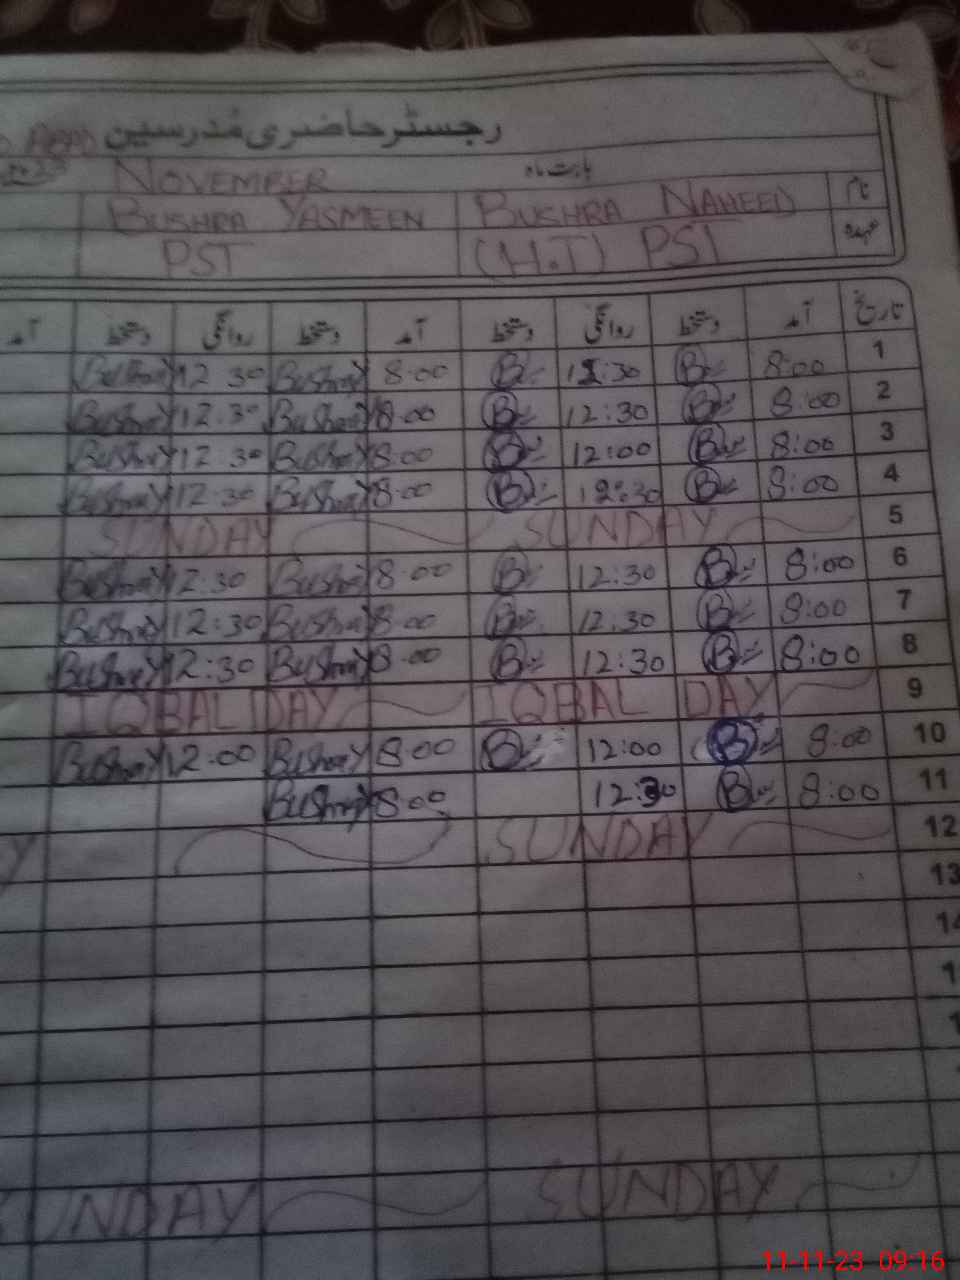 رجسٹر حاضری مُدرسین
بابت ماہ NOVEMBER
نام BUSHRA NAHEED BUSHRA YASMEEN
عہدہ (H.T) PST PST
تاریخ آمد دستخط روانگی دستخط آمد دستخط روانگی دستخط آمد
1 8:00 B 12:30 B 8:00 BushraY 12 30 BushraY
2 8:00 B 12:30 B 8:00 BushraY 12:30 BushraY
3 8:00 B 12:00 B 8:00 BushraY 12:30 BushraY
4 8:00 B 12:30 B 8:00 BushraY 12:30 BushraY
5 SUNDAY SUNDAY
6 8:00 B 12:30 B 8:00 BushraY 12:30 BushraY
7 8:00 B 12:30 B 8:00 BushraY 12:30 BushraY
8 8:00 B 12:30 B 8:00 BushraY 12:30 BushraY
9 IQBAL DAY IQBAL DAY
10 8:00 B 12:00 B 8:00 BushraY 12:00 BushraY
11 8:00 B 12:30 8:00 BushraY
12 SUNDAY Y
13
SUNDAY UNDAY
11-11-23 09:16